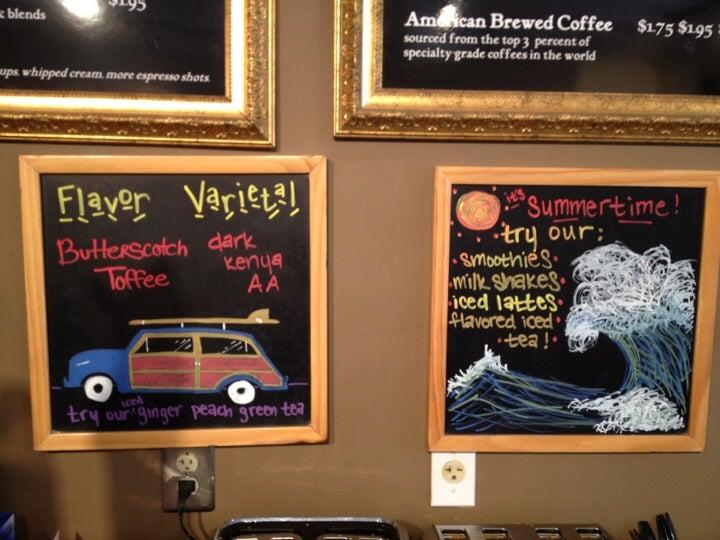 & blends
$1.95
ups, whipped cream, more espresso shots.
American Brewed Coffee $1.75 $1.95
sourced from the top 3 percent of
specialty-grade coffees in the world
Flavor Varietal
Butterscotch
Toffee
dark
kenya
AA
try our iced ginger peach green tea
it's summertime!
try our:
smoothies
milk shakes
iced lattes
flavored iced
tea!